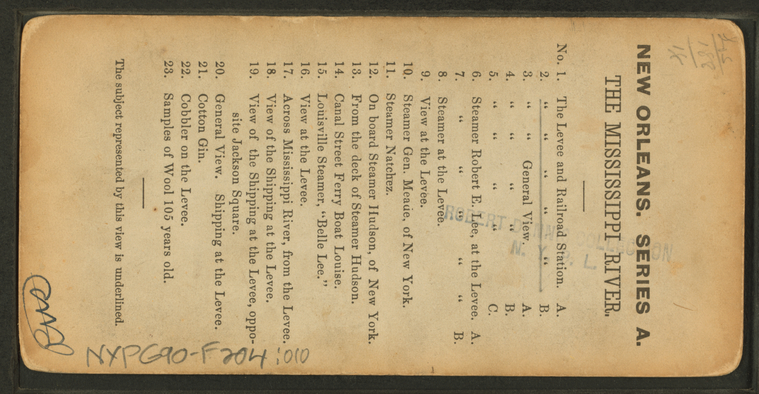 NEW ORLEANS. SERIES A.
THE MISSISSIPPI RIVER.
No. 1. The Levee and Railroad Station. A.
2. " " " " " B.
3. " " General View. A.
4. " " " " B.
5. " " " " C.
6. Steamer Robert E. Lee, at the Levee. A.
7. " " " " " B.
8. Steamer at the Levee.
9. View at the Levee.
10. Steamer Gen. Meade, of New York.
11. Steamer Natchez.
12. On board Steamer Hudson, of New York.
13. From the deck of Steamer Hudson.
14. Canal Street Ferry Boat Louise.
15. Louisville Steamer, "Belle Lee."
16. View at the Levee.
17. Across Mississippi River, from the Levee.
18. View of the Shipping at the Levee.
19. View of the Shipping at the Levee, oppo-
site Jackson Square.
20. General View. Shipping at the Levee.
21. Cotton Gin.
22. Cobbler on the Levee.
23. Samples of Wool 105 years old.
The subject represented by this view is underlined.
ROBERT COLLECTION
N. Y. P. L.
NYPG90-F204:010